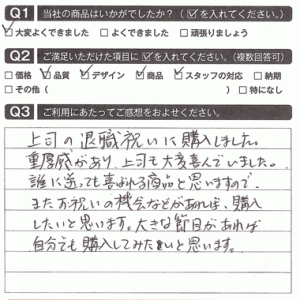 Q1 当社の商品はいかがでしたか？（☑を入れてください。）
☑大変よくできました □よくできました □頑張りましょう
Q2 ご満足いただけた項目に☑を入れてください。（複数回答可）
□価格 ☑品質 ☑デザイン ☑商品 ☑スタッフの対応 □納期
□その他（　　　） □特になし
Q3 ご利用にあたってご感想をおよせください。
上司の退職祝いに購入しました。
重厚感があり、上司も大変喜んでいました。
誰に送っても喜ばれる商品と思いますので、
またお祝いの機会などがあれば、購入
したいと思います。大きな節目があれば
自分でも購入してみたいと思います。